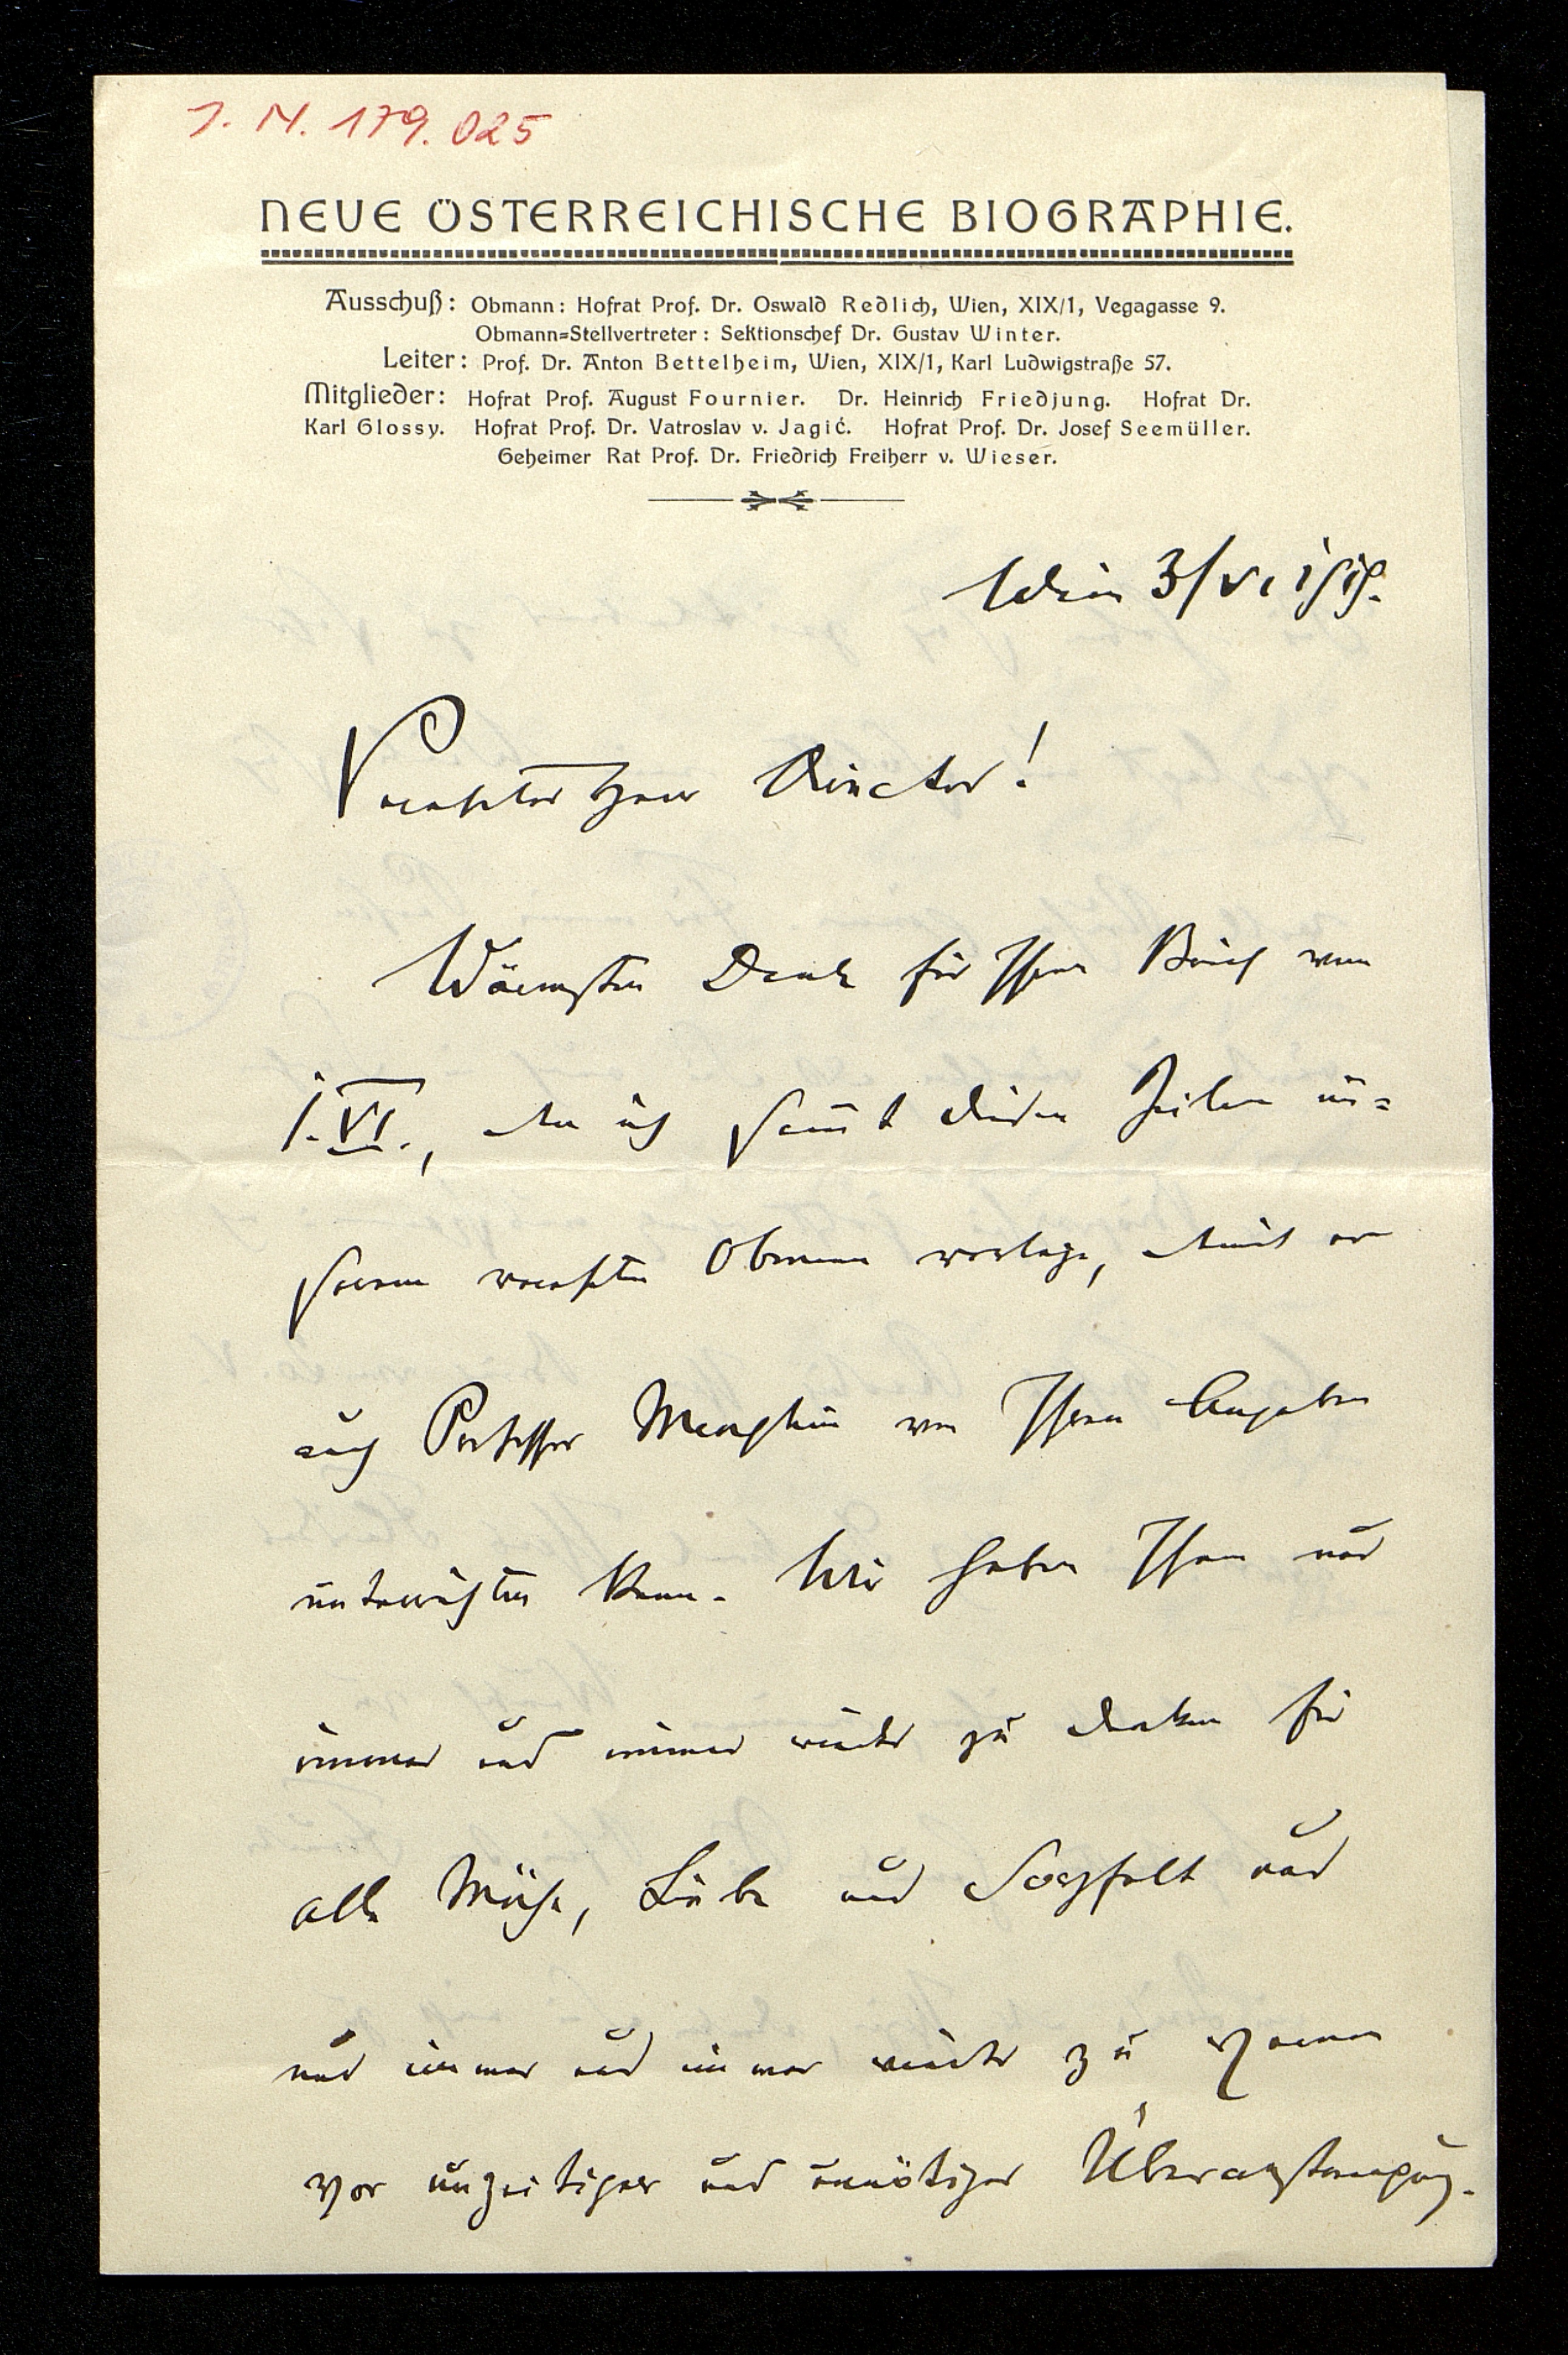 I. N. 179.025
NEUE ÖSTERREICHISCHE BIOGRAPHIE.
Ausschuß: Obmann: Hofrat Prof. Dr. Oswald Redlich, Wien, XIX/1, Vegagasse 9.
Obmann=Stellvertreter: Sektionschef Dr. Gustav Winter.
Leiter: Prof. Dr. Anton Bettelheim, Wien, XIX/1, Karl Ludwigstraße 57.
Mitglieder: Hofrat Prof. August Fournier. Dr. Heinrich Friedjung. Hofrat Dr.
Karl Glossy. Hofrat Prof. Dr. Vatroslav v. Jagić. Hofrat Prof. Dr. Josef Seemüller.
Geheimer Rat Prof. Dr. Friedrich Freiherr v. Wieser.
Wien 3/VI 1919.
Verehrter Herr Director!
Wärmsten Dank für Ihren Brief vom
1. VI., den ich samt diesen Zeilen un=
serem verehrten Obmann vorlege, damit er
auch Professor Menghin von Ihren Angaben
unterrichten kann. Wir haben Ihnen nur
immer und immer wieder zu danken für
alle Mühe, Liebe und Sorgfalt und
nur immer und immer wieder zu warnen
vor unzeitiger und unnötiger Überanstrengung.